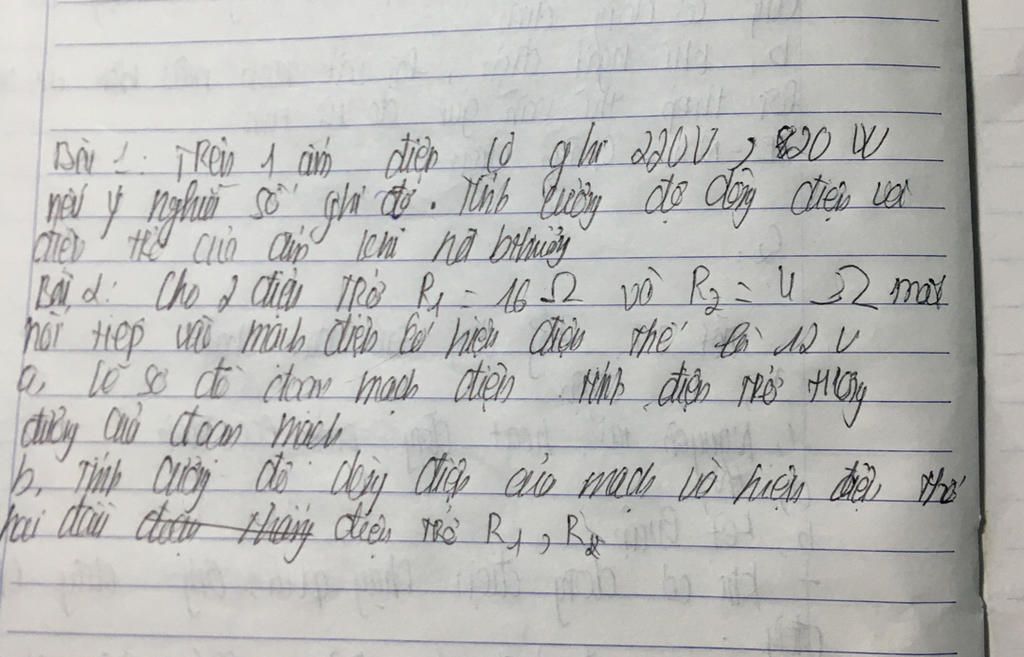 Bài 1: Trên 1 ấm điện có ghi 220V, 820 W
nêu ý nghĩa số ghi đó. Tính cường độ dòng điện và
điện trở của ấm khi nó bthường
Bài 2: Cho 2 điện trở R1 = 16 Ω và R2 = 4 Ω mắc
nối tiếp vào mạch điện có hiệu điện thế là 12 V
a, Vẽ sơ đồ đoạn mạch điện. tính điện trở tương
đương của đoạn mạch
b, Tính cường độ dòng điện của mạch và hiệu điện thế
hai đầu điện trở R1, R2